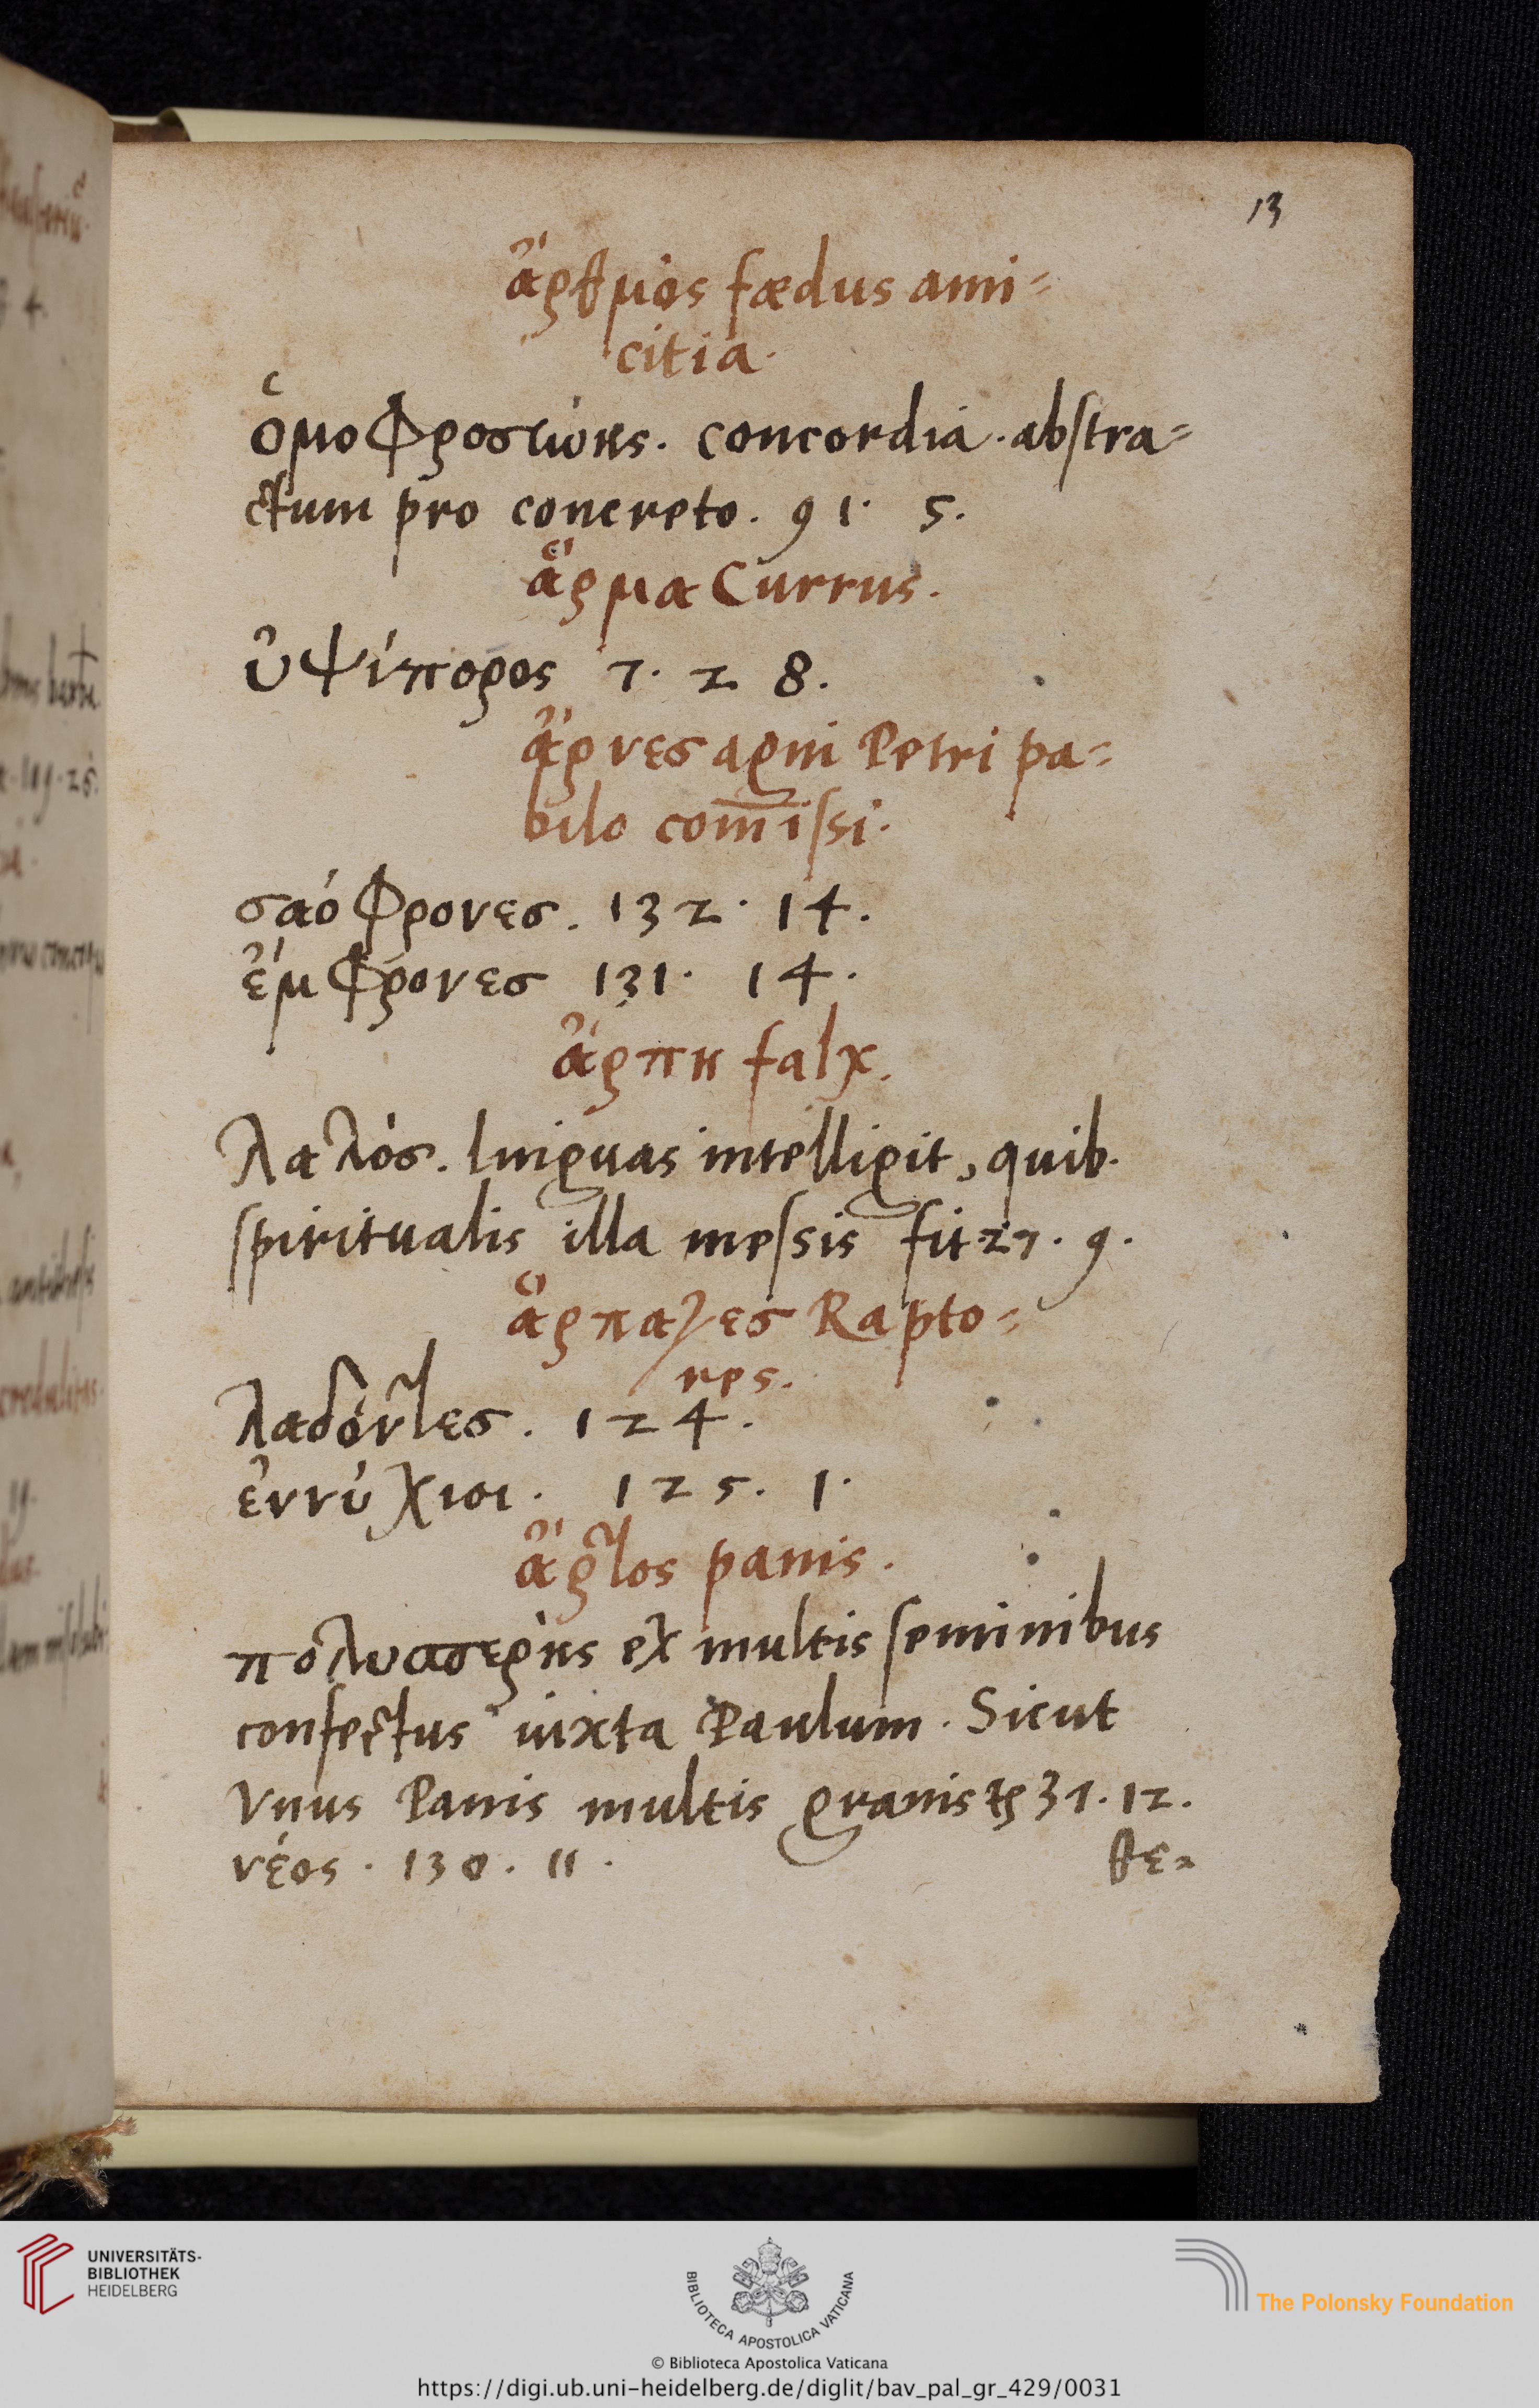 13
ἄρθμιος fædus ami=
citia.
ὁμοφροσύνης. concordia. abstra=
ctum pro concreto. 91. 5.
ἅρμα Currus.
ὑψίπορος 7. 2 8.
ἄρνες agni Petri pa=
bulo com̄issi.
σαόφρονες. 132. 14.
ἔμφρονες 131. 14.
ἄρπη falx.
λαλός. linguas intelligit, quib.
spiritualis illa messis fit 27. 9.
ἅρπαγες Rapto=
res.
λαθόντες. 124.
ἐννύχιοι. 125. 1.
ἄρτος panis.
πολυσπερὴς ex multis seminibus
confectus iuxta Paulum. Sicut
Vnus Panis multis granis 37. 12.
νέος. 130. 11.
θε=
UNIVERSITÄTS-
BIBLIOTHEK
HEIDELBERG
BIBLIOTECA APOSTOLICA VATICANA
The Polonsky Foundation
© Biblioteca Apostolica Vaticana
https://digi.ub.uni-heidelberg.de/diglit/bav_pal_gr_429/0031